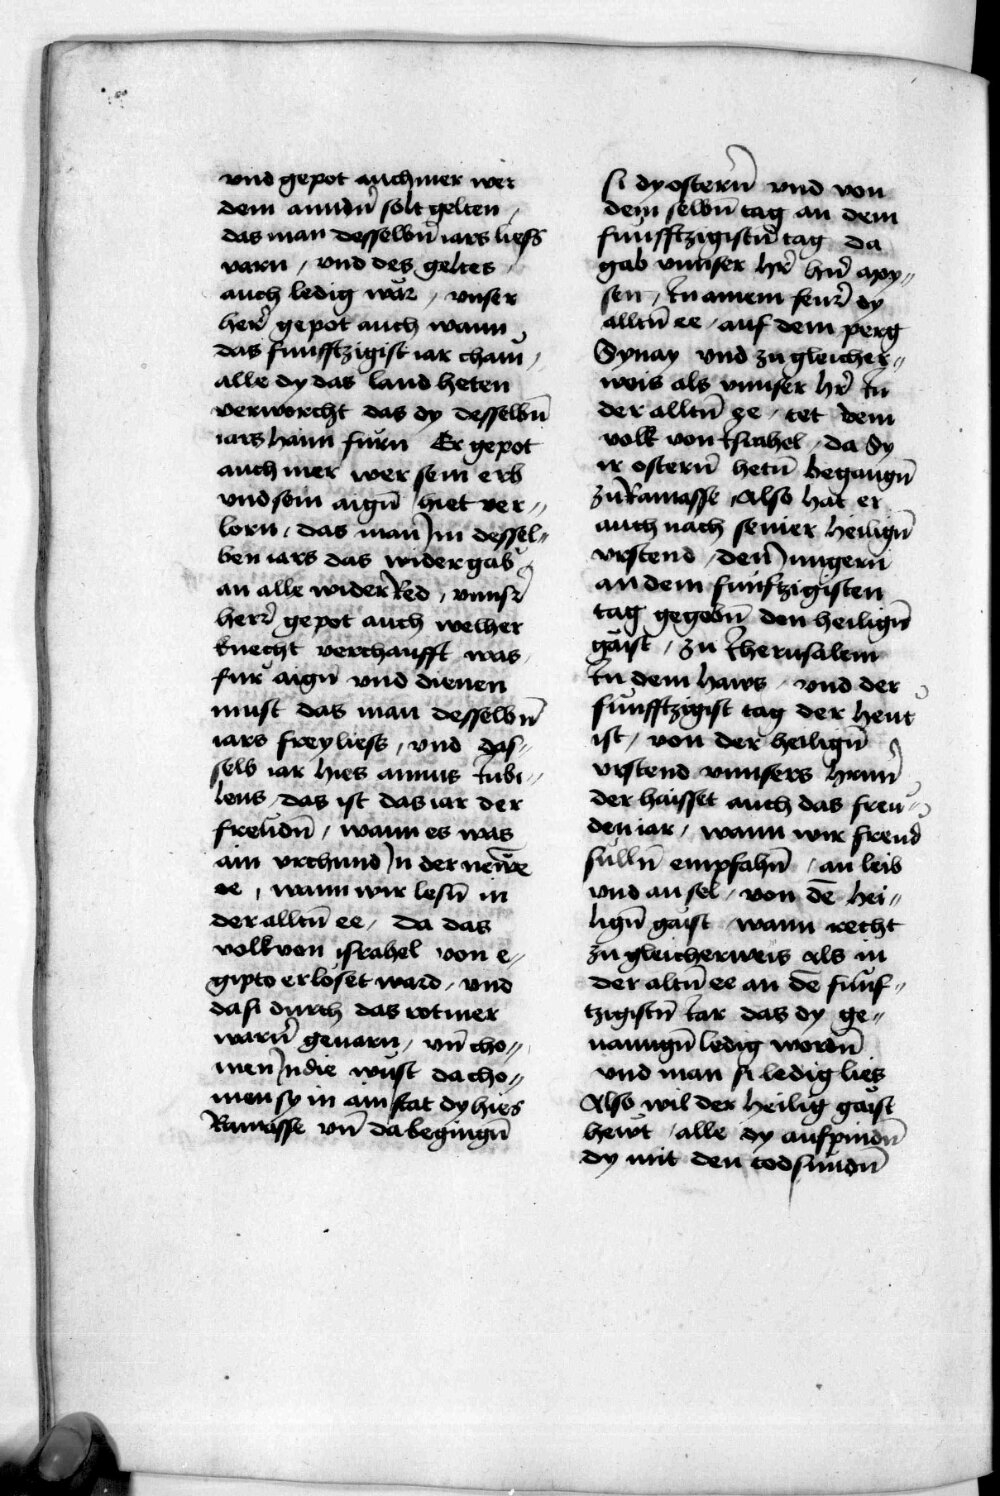 vnd gepot auch mer wer
dem anndn̄ solt gelten /
das man desselbn̄ iars liess
varn / vnd des geltes
auch ledig wär / vnser
herr̄ gepot auch wann
das funfftzigist iar cham /
alle dy das land heten
verworcht das dy desselbn̄
iars haim furn Er gepot
auch mer wer sein erb
vnd sein aign̄ hiet ver⸗
lorn / das man im dessel⸗
ben iars das wider gäb
an alle wider Red / vnnsr̄
herr̄ gepot auch welher
knecht verchaufft was
fur aign̄ vnd dienen
must das man desselbn̄
iars frey liess / vnd das⸗
selb iar hies annus iubi⸗
leus / das ist das iar der
freudn̄ / wann es was
ain vrchund in der newē
ee / wann wir lesn̄ in
der alltn̄ ee / Da das
volk von israhel von e⸗
gipto erlöset ward / vnd
da si durch das rot mer
warn̄ geuarn / vn̄ cho⸗
men in die wüst da cho⸗
men sy in ain stat dy hies
Ramasse vn̄ da begingn̄
si dy ostern̄ vnd von
dem selbn̄ tag an dem
funfftzigistn̄ tag da
gab vnnser hr̄ hn̄ moy⸗
sen / In ainem feur̄ dy
alltn̄ ee / auf dem perg
Synay vnd zu gleicher⸗
weis als vnnser hr̄ In
der alltn̄ ee / tet dem
volk von Israhel / da Sy
ir ostern̄ hetn̄ begangn̄
zu Ramasse Also hat er
auch nach seiner heilign̄
vrstend / den iungern̄
an dem funftzigisten
tag gegebn̄ den heilign̄
gäist / zu Iherusalem
In dem haws / vnd der
funfftzigist tag der heut
ist / von der heilign̄
vrstend vnnsers hrnn̄
der haisset auch das freu⸗
den iar / wann wir freud
sülln̄ empfahn̄ / an leib
vnd an sel / von dē hei⸗
lign̄ gaist / wann recht
zu gleicherweis als in
der altn̄ ee an dē funf⸗
tzigistn̄ Iar das dy ge⸗
uanngn̄ ledig wordn̄
vnd man si ledig lies
Also wil der heilig gaist
hewt / alle dy aufpindn̄
dy mit den todsundn̄